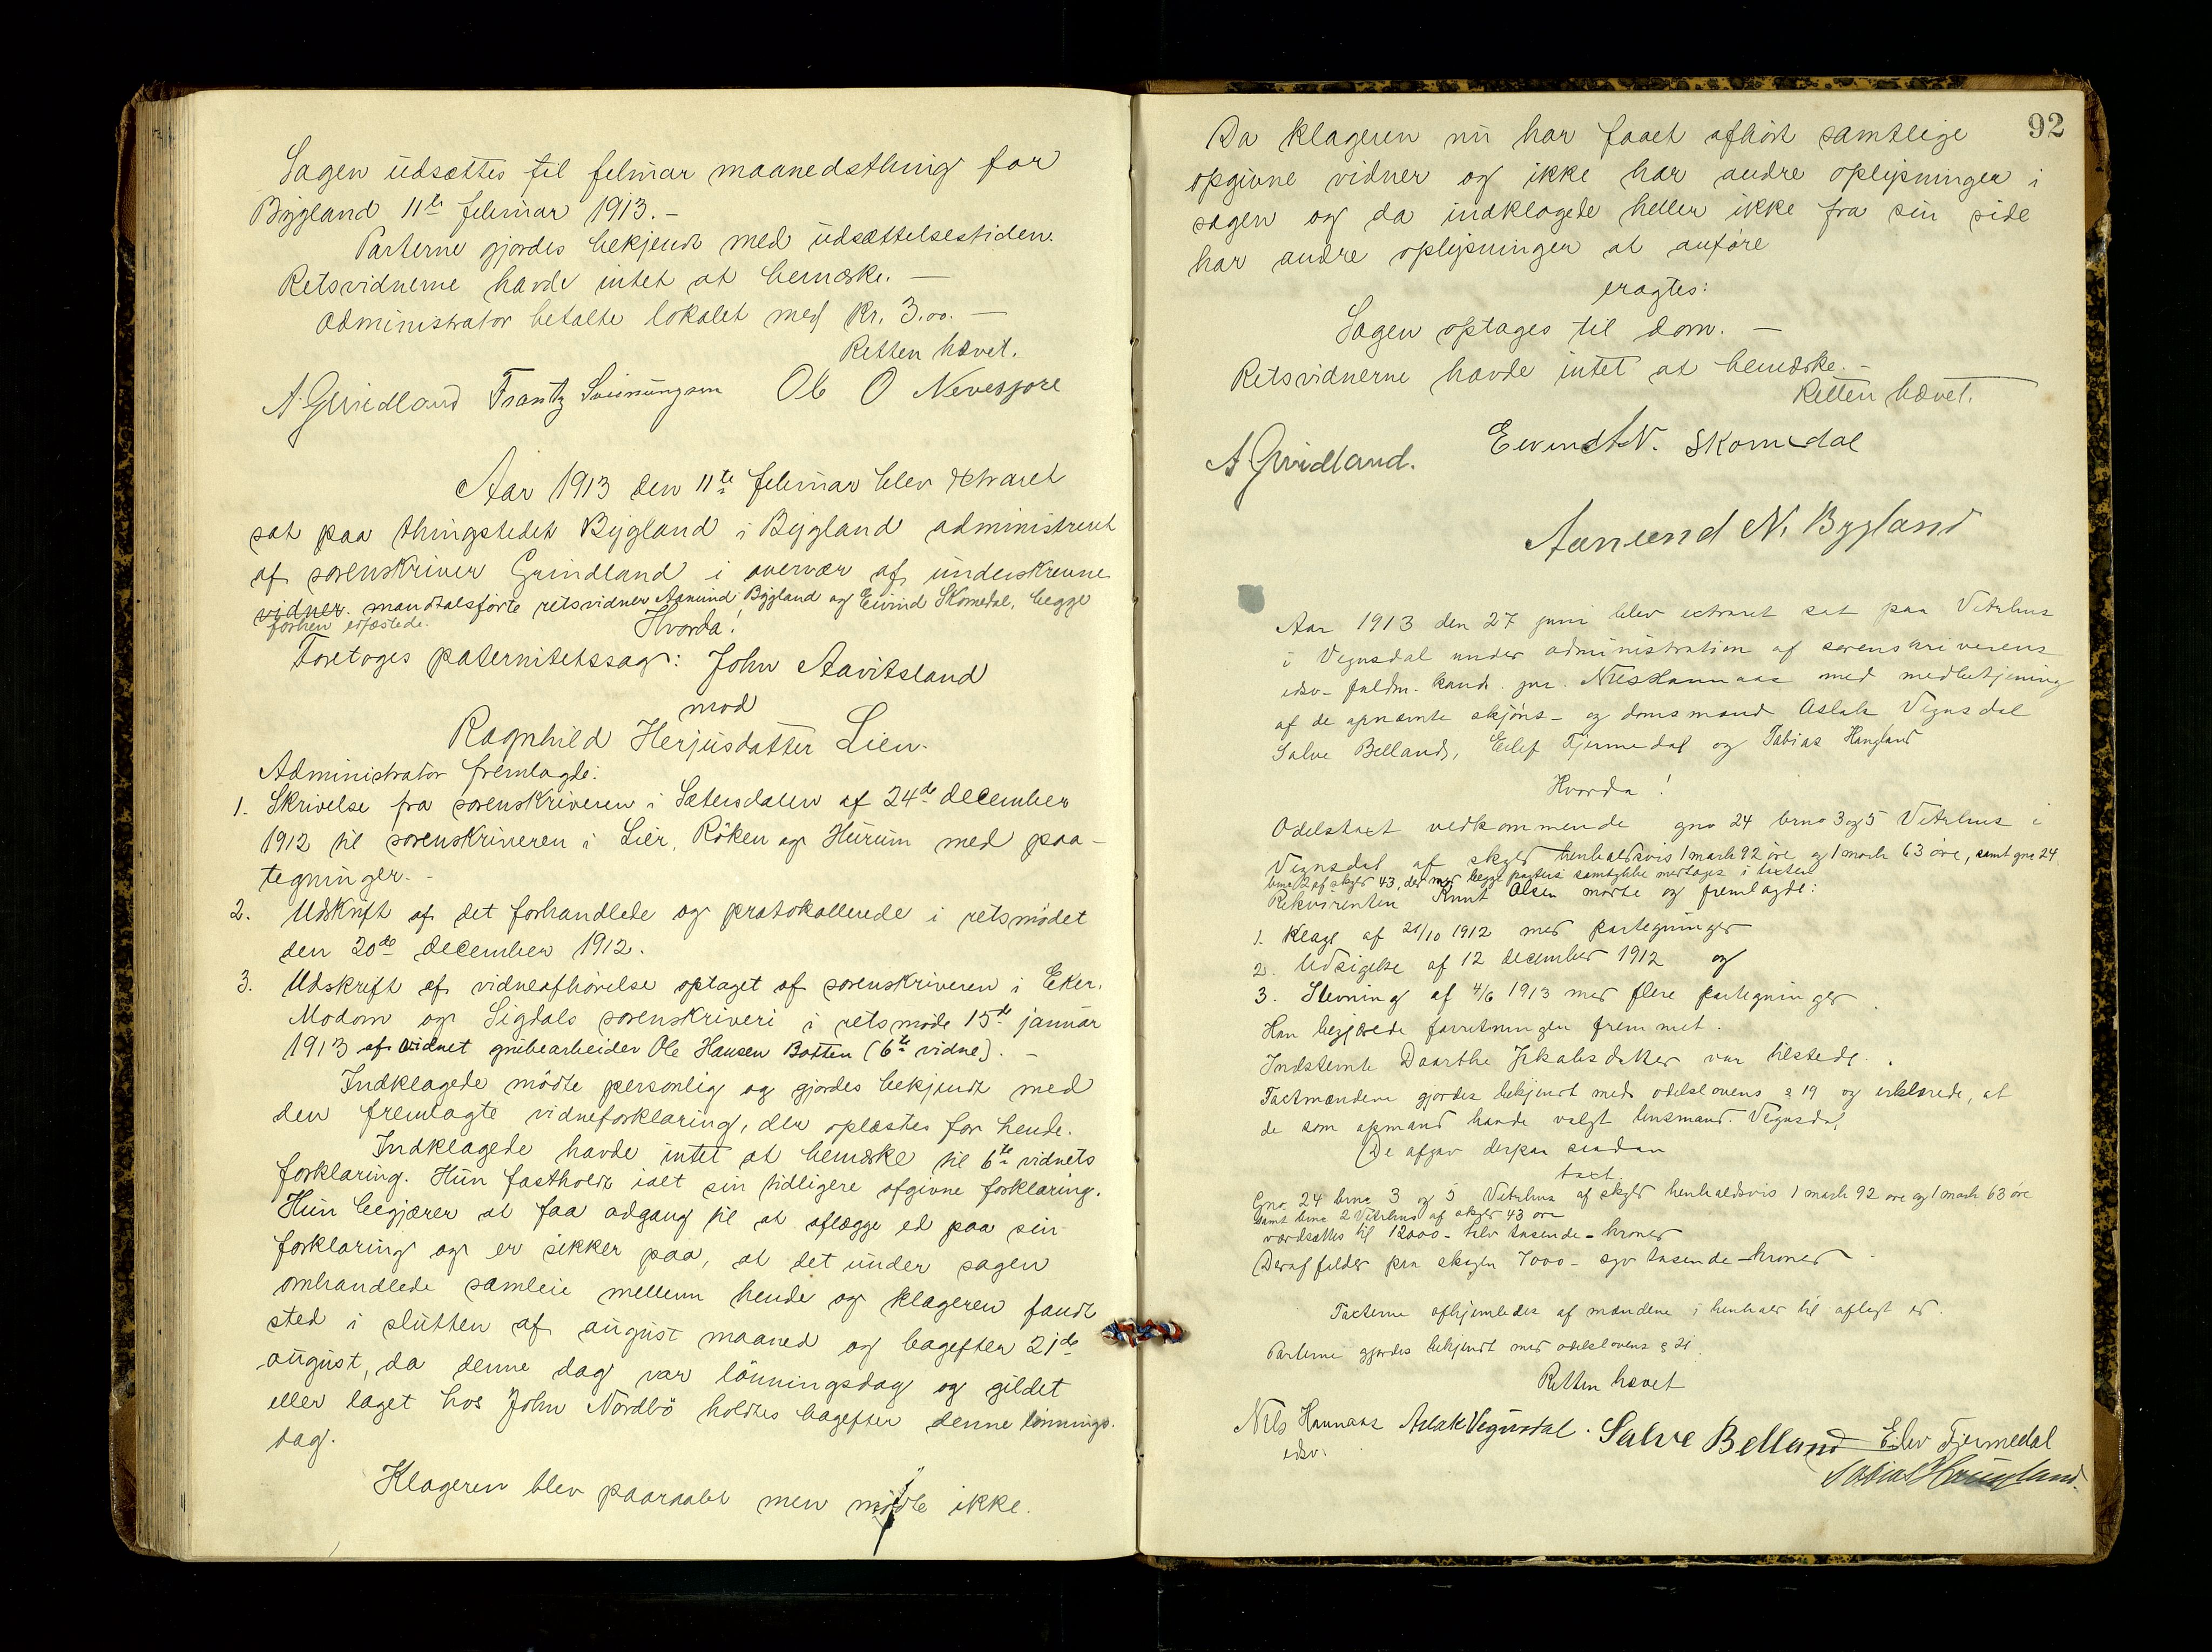 Sagen udsættes til februar maanedsthing for
Bygland 11te februar 1913. –
Parterne gjordes bekjendt med udsættelsestiden.
Retsvidnerne havde intet at bemærke. –
Administrator betalte lokalet med Kr. 3.00. –
Retten hævet.
A. Grindland Frantz Sveinungsen Ole O Neverjore
Aar 1913 den 11te februar blev extraret
sat paa thingstedet Bygland i Bygland administreret
af sorenskriver Grindland i overvær af underskrevne
vidner. mandtalsførte retsvidner Aanund Bygland og Eivind Skomedal, begge
forhen edfæstede.
Hvorda!
Foretoges paternitetssag: John Aavitsland
mod
Ragnhild Herjusdatter Lien.
Administrator fremlagde:
1. Skrivelse fra sorenskriveren i Sætersdalen af 24de december
1912 til sorenskriveren i Lier, Röken og Hurum med paa-
tegninger. –
2. Udskrift af det forhandlede og protokollerede i retsmödet
den 20de december 1912.
3. Udskrift af vidneafhörelse optaget af sorenskriveren i Eker,
Modum og Sigdals sorenskriveri i retsmöde 15de januar
1913 af vidnet grubearbeider Ole Hansen Botten (6te vidne). –
Indklagede mödte personlig og gjordes bekjendt med
den fremlagte vidneforklaring, der oplæstes for hende.
Indklagede havde intet at bemærke til 6te vidnets
forklaring. Hun fastholdt ialt sin tidligere afgivne forklaring.
Hun begjærer at faa adgang til at aflægge ed paa sin
forklaring og er sikker paa, at det under sagen
omhandlede samleie mellem hende og klageren fandt
sted i slutten af august maaned og bagefter 21de
august, da denne dag var lönningsdag og gildet
eller laget hos John Nordbö holdtes bagefter denne lönnings-
dag.
Klageren blev paaraabt men mödte ikke.
92
Da klageren nu har faaet afhört samtlige
opgivne vidner og ikke har andre oplysninger i
sagen og da indklagede heller ikke fra sin side
har andre oplysninger at anföre
eragtes:
Sagen optages til dom. –
Retsvidnerne havde intet at bemærke. –
Retten hævet.
A. Grindland. Eivind N. Skomedal
Aanund N. Bygland
Aar 1913 den 27 juni blev extraret sat paa Vetrhus
i Vegusdal under administration af sorenskriverens
edsv. fuldm. kand. jur. Nils Hannaas med medbetjening
af de opnævnte skjöns- og domsmænd Aslak Vegusdal
Salve Belland, Eilef Fjermedal og Tobias Haugland
Hvorda!
Odelstaxt vedkommende gno 24 brno 3 og 5 Vetrhus i
Vegusdal af skyld henholdsvis 1 mark 92 öre og 1 mark 63 öre, samt gno 24
brno 2 af skyld 43, der med begge parters samtykke medtages i taxten
Rekvirenten Knut Olsen mødte og fremlagde:
1. Klage af 21/10 1912 med paategninger
2. Udsigelse af 12 december 1912 og
3. Stevning af 4/6 1913 med flere paategninger.
Han begjærede forretningen fremmet.
Indstevnte Daarthe Jakobsdatter var tilstede.
Taxtmændene gjordes bekjendt med odelslovens § 19 og erklærede, at
de som opmand havde valgt lensmand Vegusdal
De afgav derpaa saadan
taxt.
Gno 24 brno 3 og 5 Vetrhus af skyld henholdsvis 1 mark 92 øre og 1 mark 63 öre
samt brno 2 Vetrhus af skyld 43 öre
værdsættes til 12000 – tolv tusende – kroner
Deraf falder paa skogen 7000 – syv tusende – kroner
Taxterne afhjemledes af mændene i henhold til aflagt ed.
Parterne gjordes bekjendt med odelslovens § 21.
Retten hævet
Nils Hannaas Aslak Vegusdal. Salve Belland Eilev Fjermedal
edsv.
Tobias Haugland.